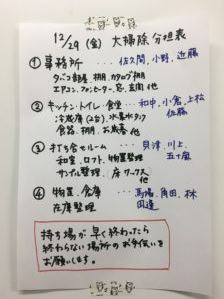 12/29(金) 大掃除分担表
① 事務所 …… 佐久間、小野、近藤
タバコ部屋 棚、カタログ棚
エアコン、ファンヒーター、窓、玄関 他
② キッチン・トイレ・食堂 …… 和中、小倉、上松
冷蔵庫(2台)、水素水タンク 佐藤
食器、棚、お歳暮 他
③ 打ち合せルーム …… 貝津、川上、
和室、ロフト、物置整理 五十嵐
サンプル整理、床ワックス
他
④ 物置、倉庫 …… 馬場、角田、林
在庫整理 田邉
持ち場が早く終わったら
終わらない場所のお手伝いを
お願いします。